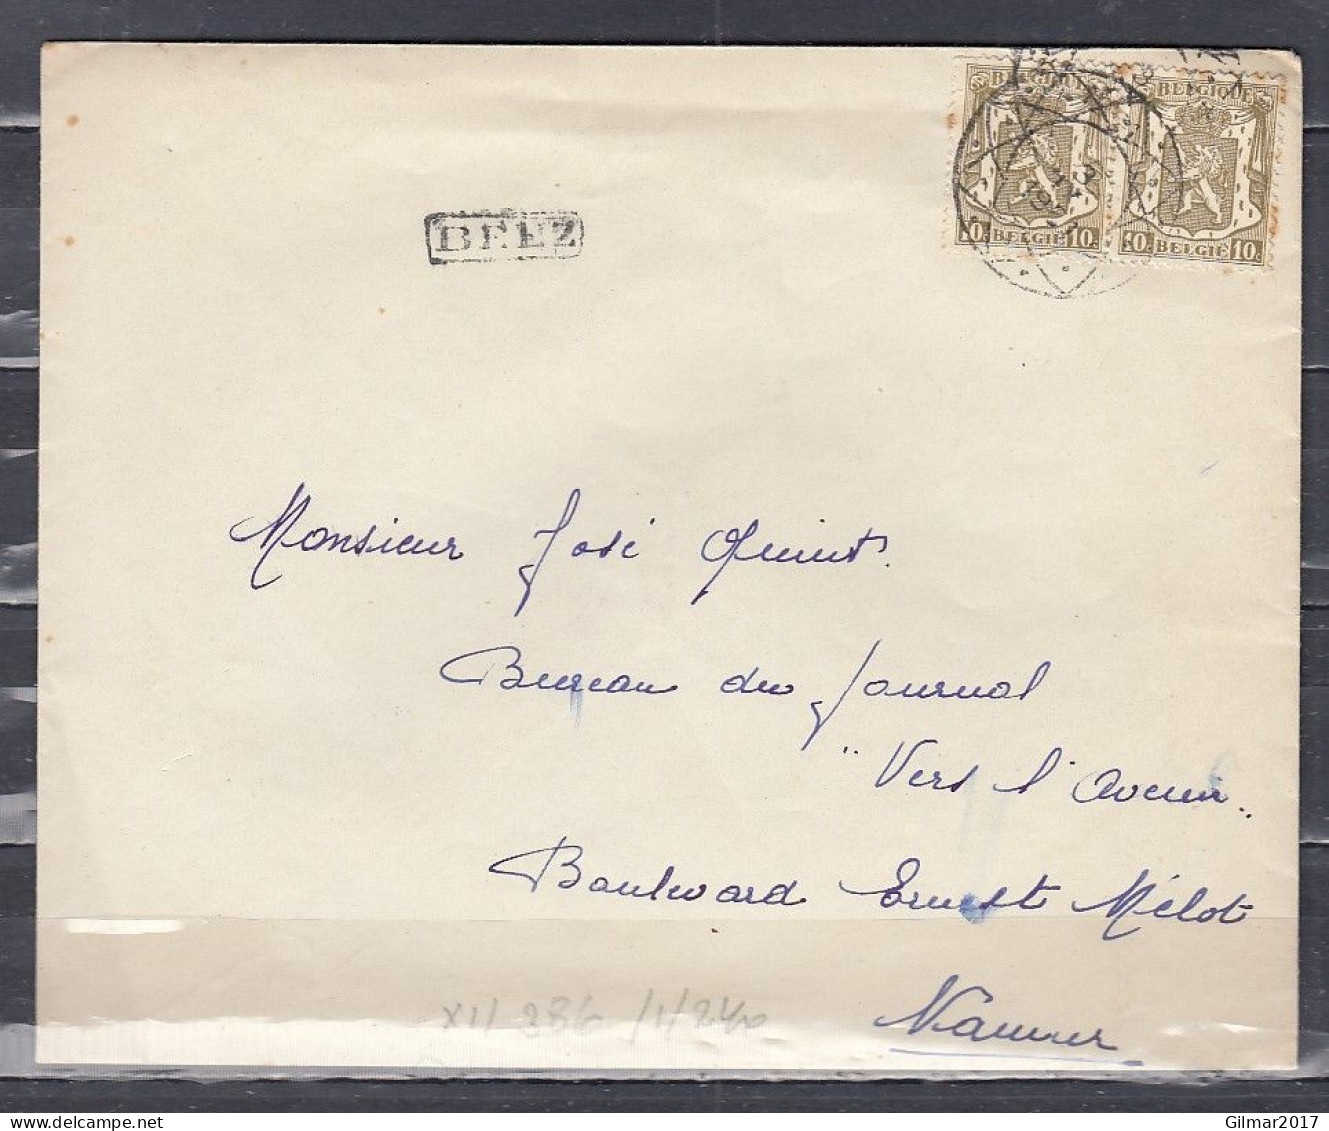 BELGIQUE BELGIQUE
10c BELGIË 10c 10 BELGIË 10c
BEEZ
Monsieur José Quint.
Bureau du Journal
"Vers l'Avenir"
Boulevard Ernest Mélot
Namur
XII
Gilmar2017